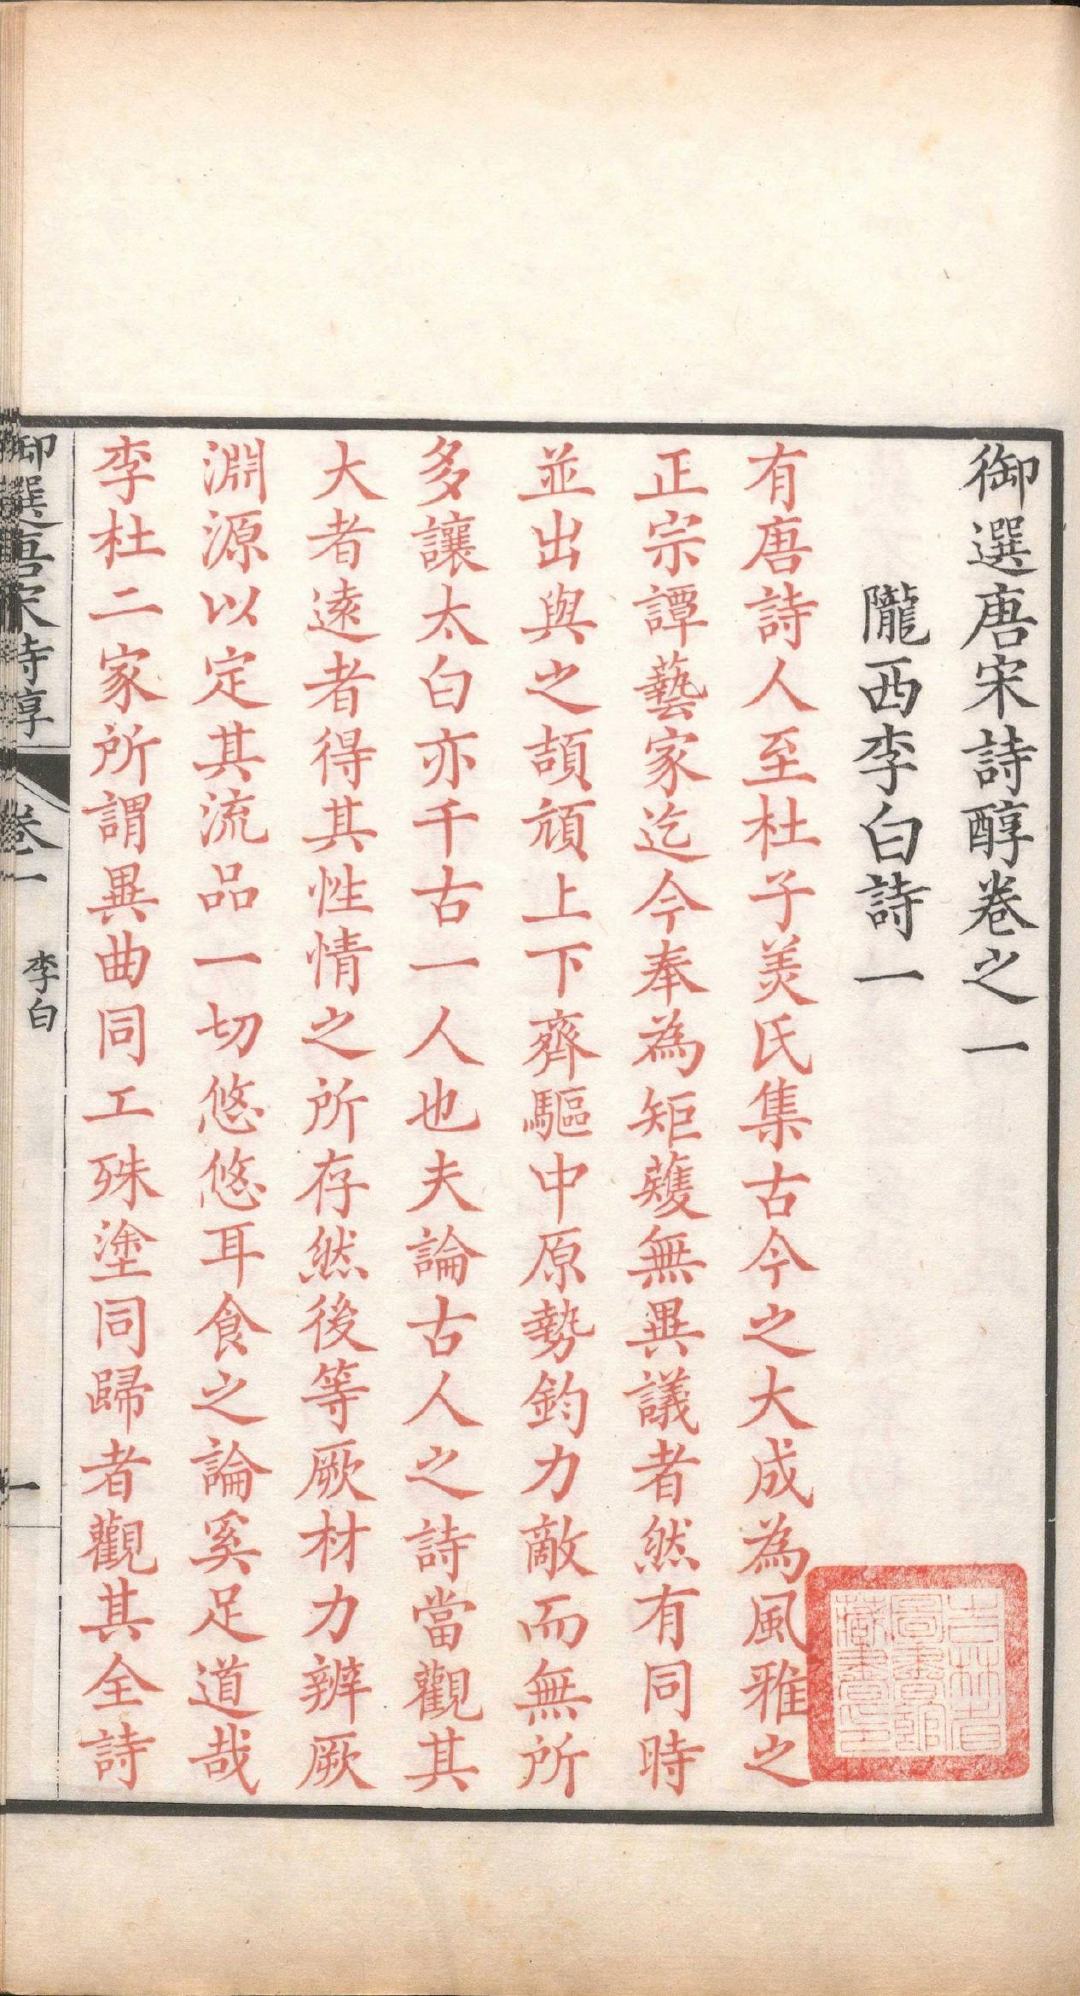 御選唐宋詩醇卷之一
隴西李白詩一
有唐詩人至杜子美氏集古今之大成為風雅之
正宗譚藝家迄今奉為矩矱無異議者然有同時
並出與之頡頏上下齊驅中原勢鈞力敵而無所
多讓太白亦千古一人也夫論古人之詩當觀其
大者遠者得其性情之所存然後等厥材力辨厥
淵源以定其流品一切悠悠耳食之論奚足道哉
李杜二家所謂異曲同工殊塗同歸者觀其全詩
御選唐宋詩醇
卷一
李白
一
吉林省
圖書館
藏書之印